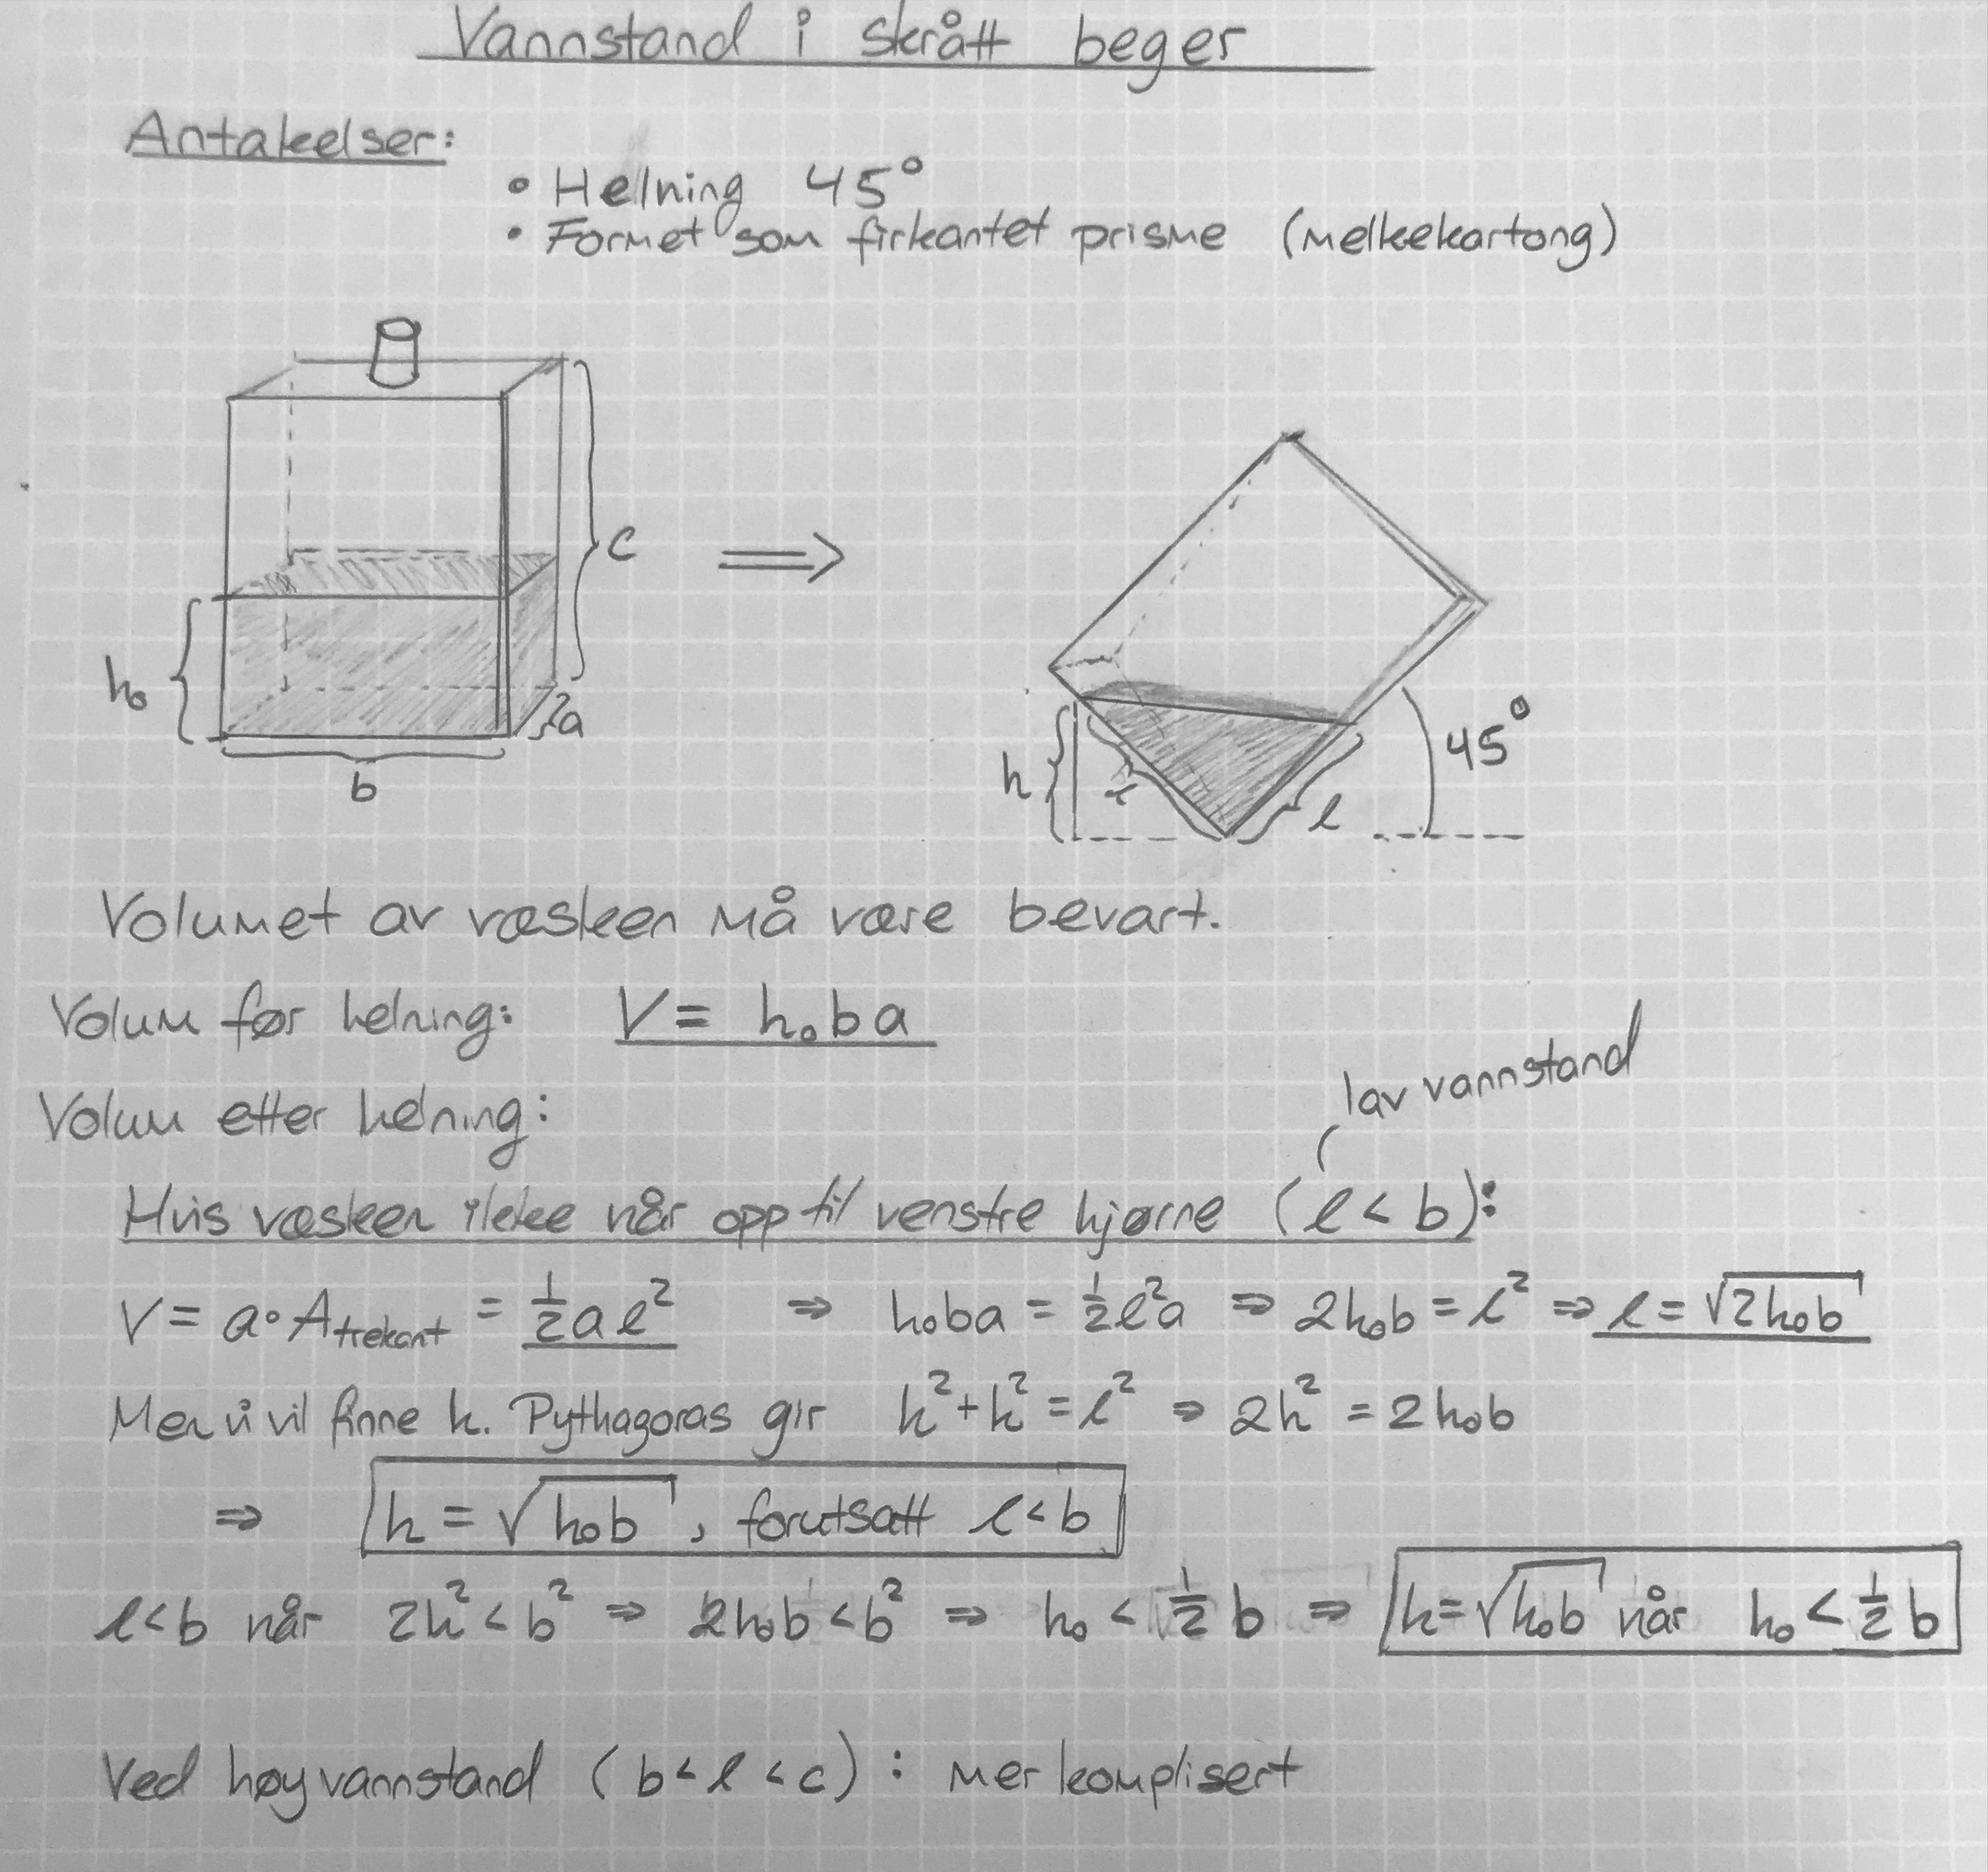 Vannstand i skrått beger
Antakelser:
• Helning 45°
• Formet som firkantet prisme (melkekartong)
c
h₀
a
b
h
l
l
45°
Volumet av væsken må være bevart.
Volum før helning: V = h₀ba
lav vannstand
Volum etter helning:
Hvis væsken ikke når opp til venstre hjørne (l < b):
V = a·A_trekant = ½al² ⇒ h₀ba = ½l²a ⇒ 2h₀b = l² ⇒ l = √2h₀b
Men vi vil finne h. Pythagoras gir h² + h² = l² ⇒ 2h² = 2h₀b
⇒ h = √h₀b, forutsatt l < b
l < b når 2h² < b² ⇒ 2h₀b < b² ⇒ h₀ < ½b ⇒ h = √h₀b når h₀ < ½b
Ved høy vannstand (b < l < c): mer komplisert